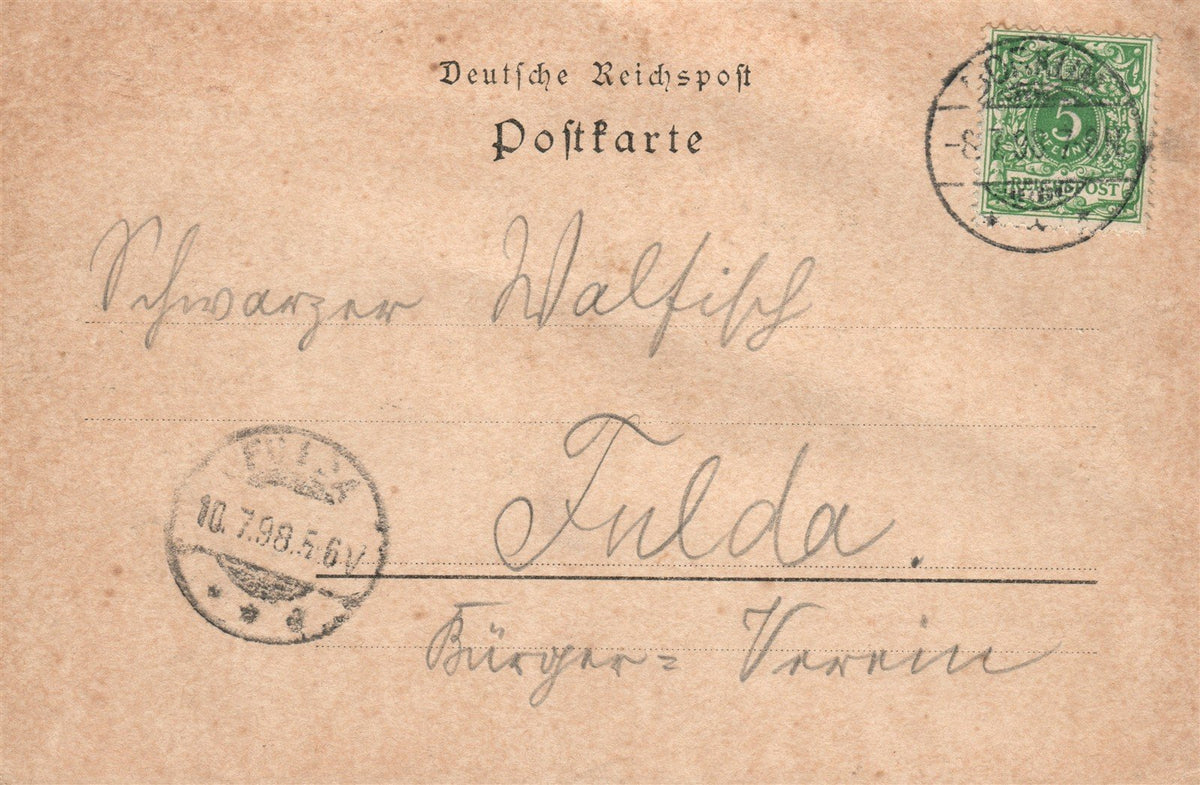 Deutsche Reichspost
Postkarte
5
REICHSPOST
Schwarzer Walfisch
Fulda.
FULDA
10. 7. 98. 5-6 V
Bürger= Verein